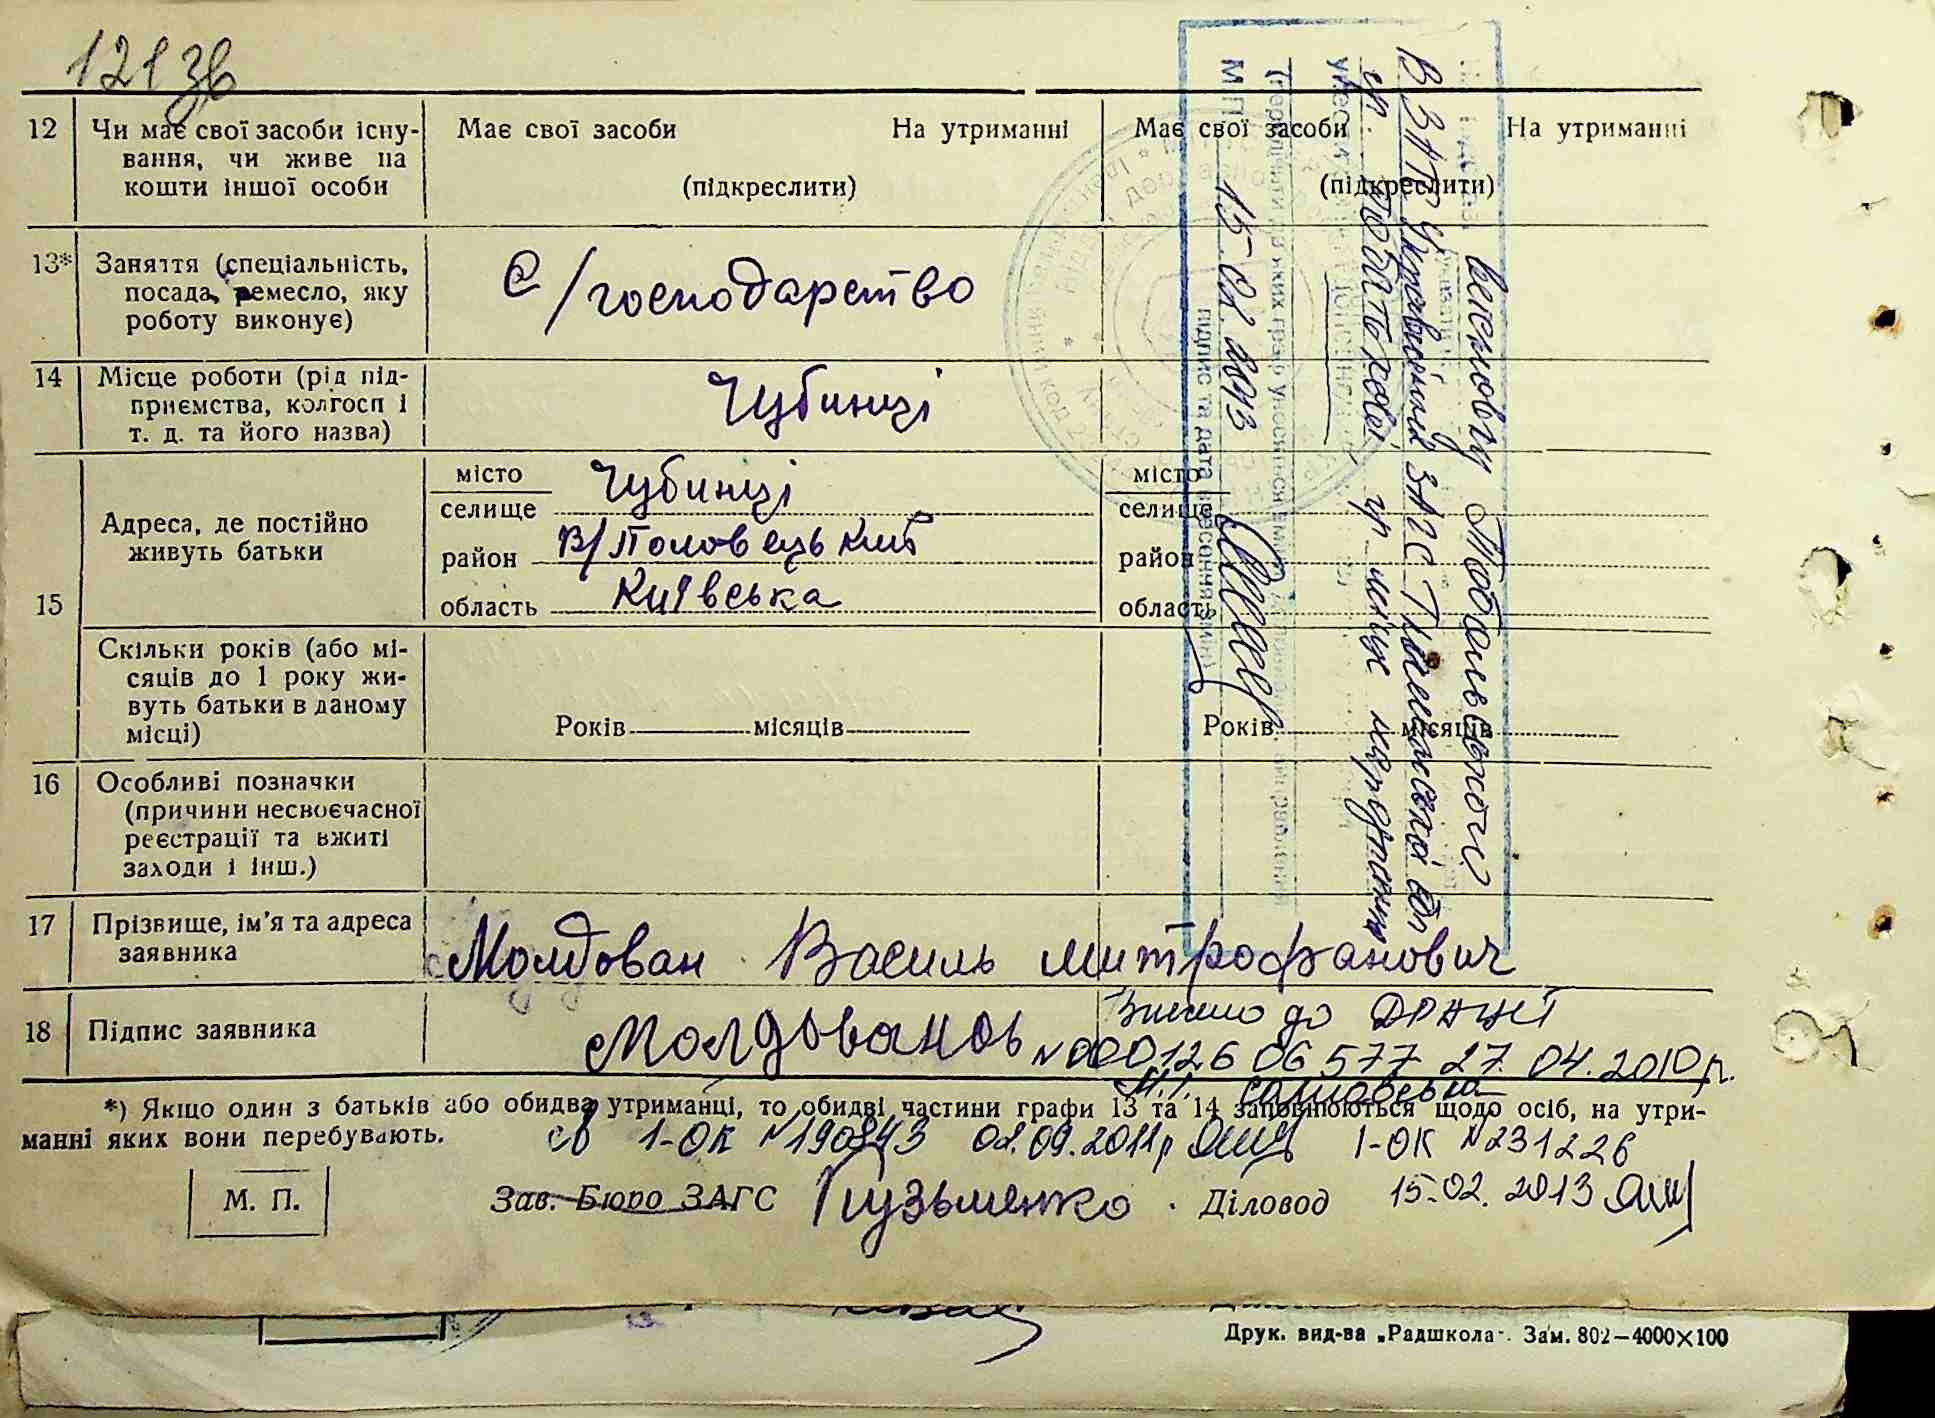 121 зв
12 Чи має свої засоби існу-
вання, чи живе на
кошти іншої особи
Має свої засоби На утриманні
(підкреслити)
Має свої засоби На утриманні
(підкреслити)
13* Заняття (спеціальність,
посада, ремесло, яку
роботу виконує)
С/господарство
14 Місце роботи (рід під-
приємства, колгосп і
т. д. та його назва)
Чубинці
15 Адреса, де постійно
живуть батьки
місто
селище Чубинці
район В/Половецький
область Київська
місто
селище
район
область
Скільки років (або мі-
сяців до 1 року жи-
вуть батьки в даному
місці)
Років місяців
Років місяців
16 Особливі позначки
(причини несвоєчасної
реєстрації та вжиті
заходи і інш.)
17 Прізвище, ім'я та адреса
заявника
Молдован Василь Митрофанович
18 Підпис заявника
Молдованов
до ДРАЦСГ
N 00012606577 27.04.2010р.
*) Якщо один з батьків або обидва утриманці, то обидві частини графи 13 та 14 заповнюються щодо осіб, на утри-
манні яких вони перебувають.
1-ОК N190843 02.09.2011р 1-ОК N231226
15.02.2013
М. П.
Зав. Бюро ЗАГС Кузьменко Діловод
В ЗАГС
М.П. 15 02 2013
підпис та дата внесення змін
Друк. вид-ва „Радшкола". Зам. 802—4000×100